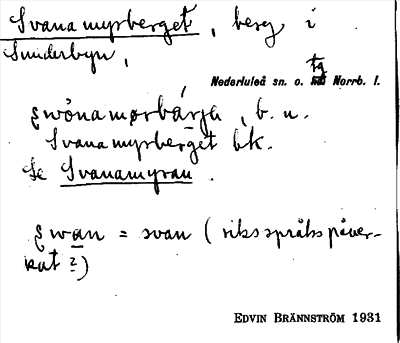 Svanamyrberget, berg i
Sunderbyn,
Nederluleå sn. o. tg Norrb. l.
swånamorbárje, b. u.
Svanamyrberget bk.
Se Svanamyran.
swan = svan (riksspråkspåver-
kat?)
EDVIN BRÄNNSTRÖM 1931